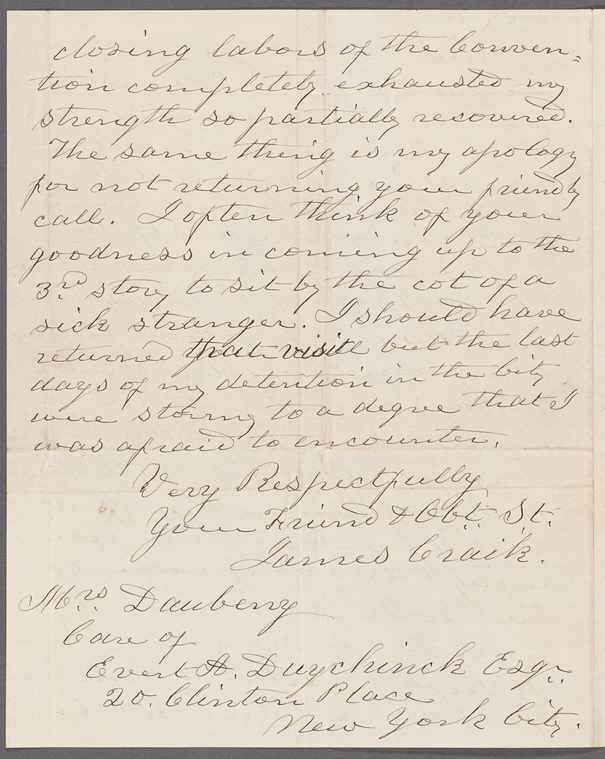 closing labors of the Conven=
tion completely exhausted my
strength so partially recovered.
The same thing is my apology
for not returning your friendly
call. I often think of your
goodness in coming up to the
3rd story to sit by the cot of a
sick stranger. I should have
returned that visit but the last
days of my detention in the City
were stormy to a degree that I
was afraid to encounter.
Very Respectfully
Your Friend & Obt. St.
James Craik.
Mrs. Dauberry
Care of
Evert A. Duychinck Esqr.
20. Clinton Place
New York City.